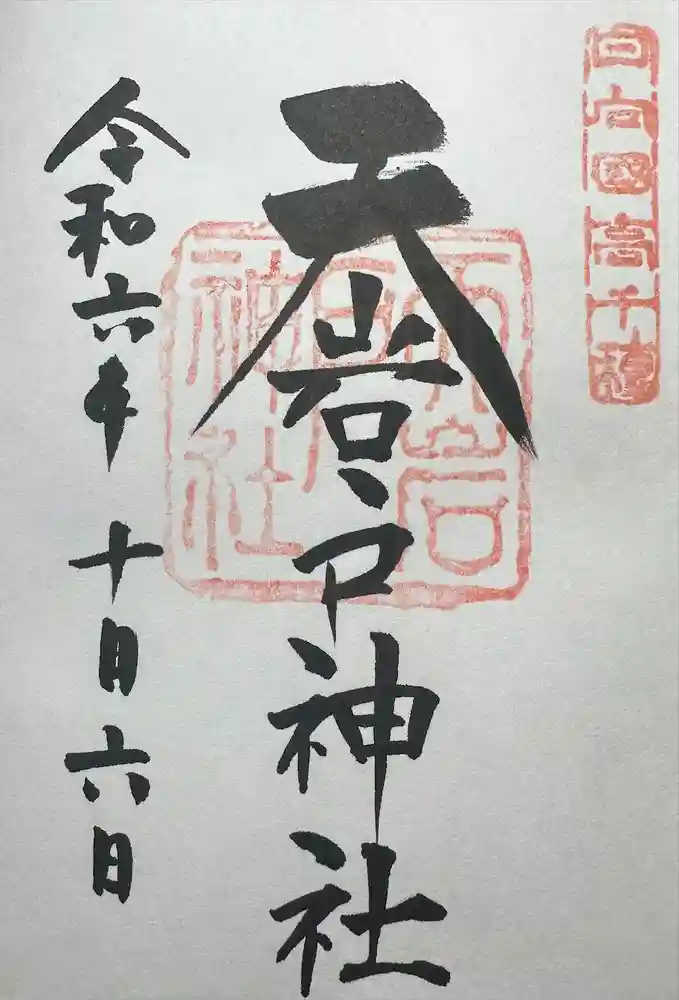 日向國高千穂
天岩戸神社
天岩戸神社
令和六年 十月六日